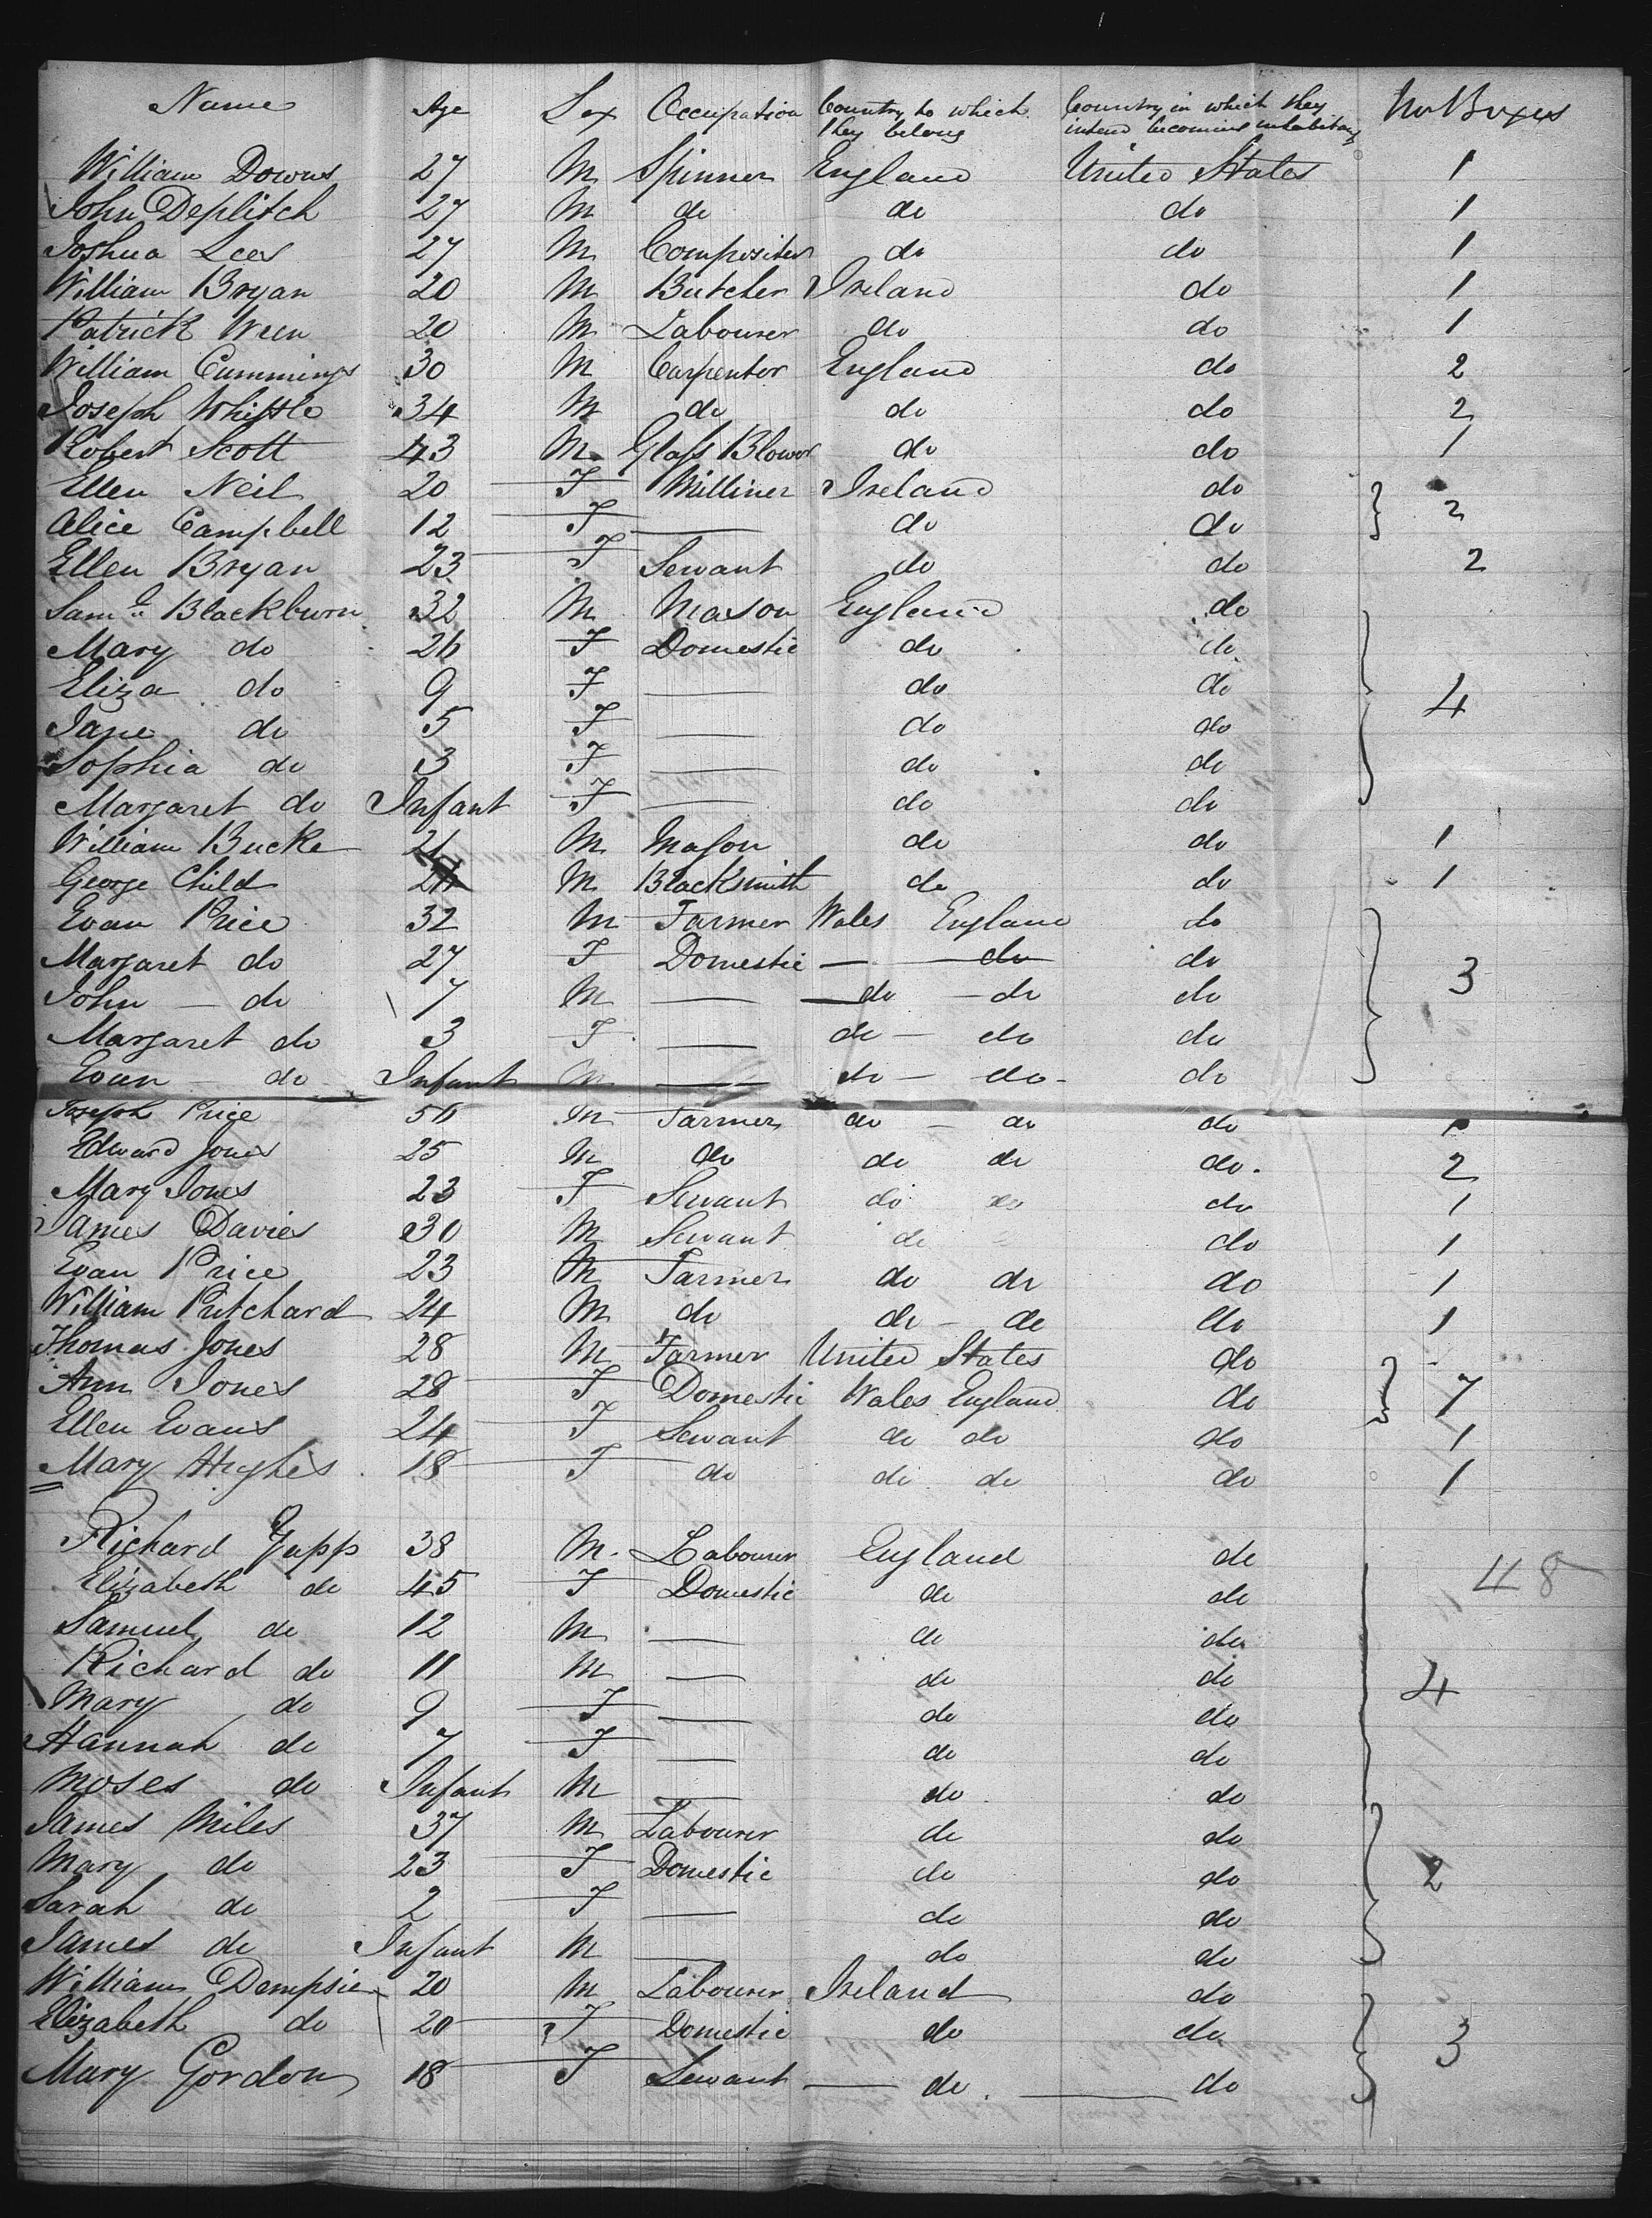 Name Age Sex Occupation Country to which they belong Country in which they intend becoming inhabitants No Boxes
William Downs 27 M Spinner England United States 1
John Deplitch 27 M do do do 1
Joshua Lees 27 M Compositor do do 1
William Bryan 20 M Butcher Ireland do 1
Patrick Wren 20 M Labourer do do 1
William Cummings 30 M Carpenter England do 2
Joseph Whittle 34 M do do do 2
Robert Scott 43 M Glass Blower do do 1
Ellen Neil 20 F Milliner Ireland do
Alice Campbell 12 F — do do } 2
Ellen Bryan 23 F Servant do do 2
Saml Blackburn 32 M Mason England do
Mary do 26 F Domestic do do
Eliza do 9 F — do do } 4
Jane do 5 F — do do
Sophia do 3 F — do do
Margaret do Infant F — do do
William Bucke 21 M Mason do do 1
George Child M Blacksmith do do 1
Evan Price 32 M Farmer Wales England do
Margaret do 27 F Domestic — do do
John — do 7 M — do — do do } 3
Margaret do 3 F — do — do do
Evan — do Infant M — do — do - do
Joseph Price 56 M Farmer do — do do 1
Edward Jones 25 M do do do do. 2
Mary Jones 23 F Servant do do do 1
James Davies 30 M Servant do do 1
Evan Price 23 M Farmer do do do 1
William Pritchard 24 M do do — do do 1
Thomas Jones 28 M Farmer United States do
Ann Jones 28 F Domestic Wales England do } 7
Ellen Evans 24 F Servant do do do 1
Mary Hughes 18 F do do do do 1
Richard Gapp 38 M. Labourer England do
48
Elizabeth do 45 F Domestic do do
Samuel do 12 M — do do
Richard do 11 M — do do
Mary do 9 F — do do 4
Hannah do 7 F — do do
Moses do Infant M — do do
James Miles 37 M Labourer do do
Mary do 23 F Domestic do do } 2
Sarah do 2 F — do do
James do Infant M — do do
William Dempsie 20 M Labourer Ireland do
Elizabeth do 20 F Domestic do do } 3
Mary Gordon 18 F Servant — do. — do